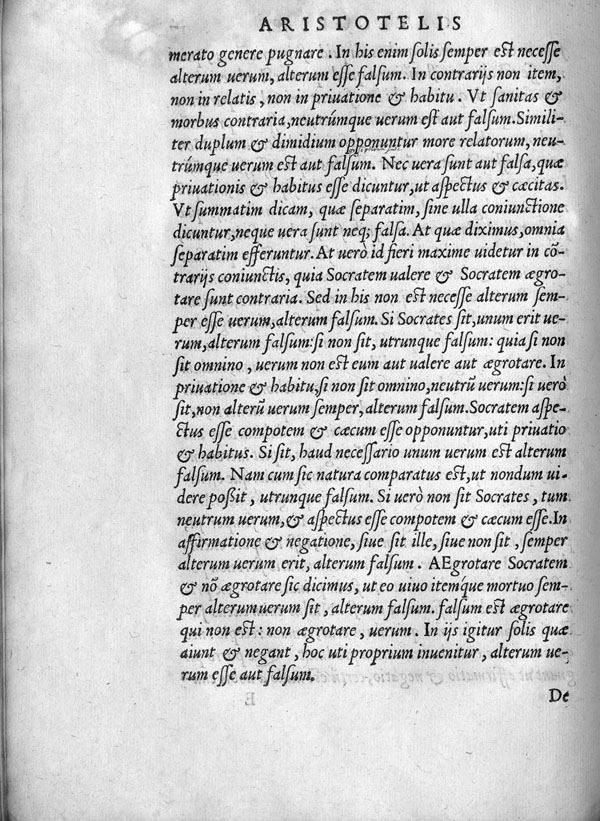 ARISTOTELIS
merato genere pugnare. In his enim solis semper est necesse
alterum uerum, alterum esse falsum. In contrarijs non item,
non in relatis, non in priuatione & habitu. Vt sanitas &
morbus contraria, neutrúmque uerum est aut falsum. Simili-
ter duplum & dimidium opponuntur more relatorum, neu-
trúmque uerum est aut falsum. Nec uera sunt aut falsa, quæ
priuationis & habitus esse dicuntur, ut aspectus & cæcitas.
Vt summatim dicam, quæ separatim, sine ulla coniunctione
dicuntur, neque uera sunt neq; falsa. At quæ diximus, omnia
separatim efferuntur. At uerò id fieri maxime uidetur in cõ-
trarijs coniunctis, quia Socratem ualere & Socratem ægro-
tare sunt contraria. Sed in his non est necesse alterum sem-
per esse uerum, alterum falsum. Si Socrates sit, unum erit ue-
rum, alterum falsum: si non sit, utrunque falsum: quia si non
sit omnino, uerum non est eum aut ualere aut ægrotare. In
priuatione & habitu, si non sit omnino, neutrũ uerum: si uerò
sit, non alterũ uerum semper, alterum falsum. Socratem aspe-
ctus esse compotem & cæcum esse opponuntur, uti priuatio
& habitus. Si sit, haud necessario unum uerum est alterum
falsum. Nam cum sic natura comparatus est, ut nondum ui-
dere poßit, utrunque falsum. Si uerò non sit Socrates, tum
neutrum uerum, & aspectus esse compotem & cæcum esse. In
affirmatione & negatione, siue sit ille, siue non sit, semper
alterum uerum erit, alterum falsum. AEgrotare Socratem
& nõ ægrotare sic dicimus, ut eo uiuo itémque mortuo sem-
per alterum uerum sit, alterum falsum. falsum est ægrotare
qui non est: non ægrotare, uerum. In ijs igitur solis quæ
aiunt & negant, hoc uti proprium inuenitur, alterum ue-
rum esse aut falsum.
De